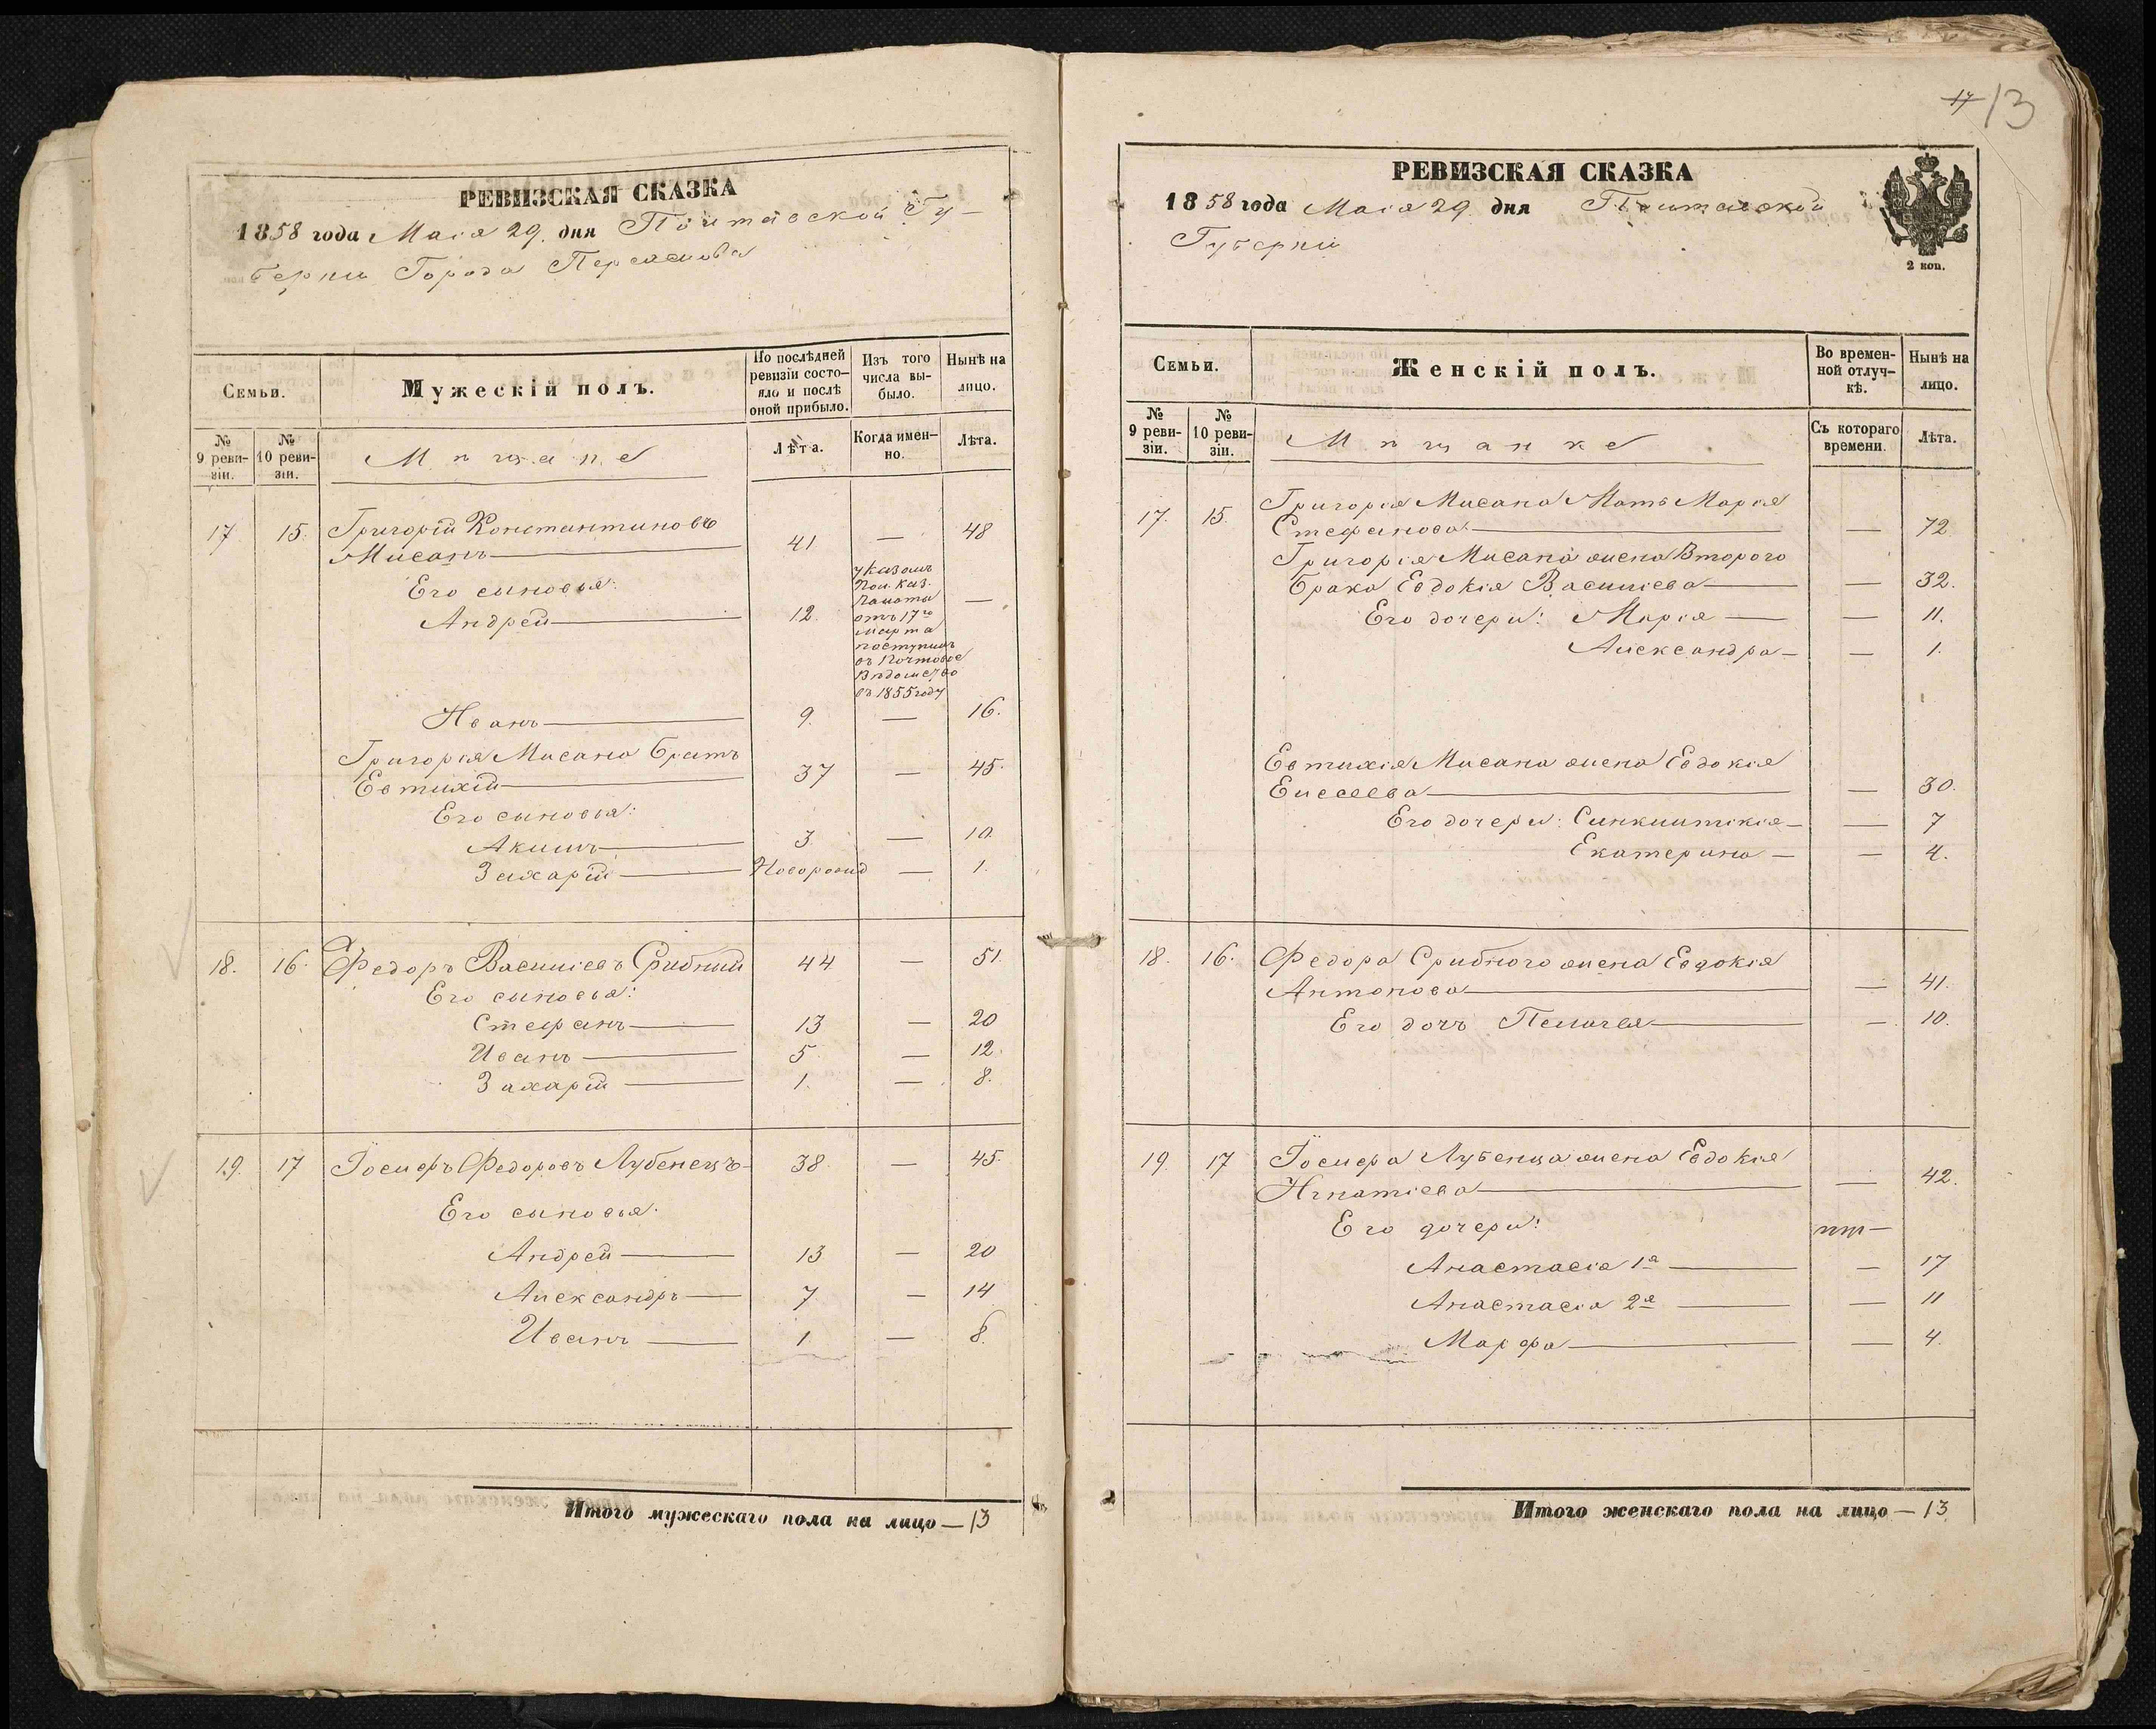 РЕВИЗСКАЯ СКАЗКА
1858 года Маія 29. дня Полтавской Гу-
берніи Города Переяслова
Семьи.
Мужескій полъ.
По послѣдней ревизіи состо-яло и послѣ оной прибыло.
Изъ того числа вы-было.
Нынѣ на лицо.
№ 9 реви-зіи.
№ 10 реви-зіи.
Мѣщане
Лѣта.
Когда имен-но.
Лѣта.
17 15. Григорій Константиновъ
Мисанъ 41 — 48
Его сыновья:
Андрей 12. указомъ
Пол. Каз.
Палаты —
отъ 17го
марта
поступилъ
въ Почтовое
Вѣдомство
въ 1855 году
Иванъ 9. — 16.
Григорія Мисана братъ
Евтихій 37 — 45.
Его сыновья:
Акимъ 3. — 10.
Захарій Новорожд — 1.
18. 16. Федоръ Василіевъ Срибный 44 — 51.
Его сыновья:
Стефанъ 13 — 20
Иванъ 5. — 12.
Захарій 1. — 8.
19. 17 Іосифъ Федоровъ Лубенецъ 38. — 45.
Его сыновья:
Андрей 13 — 20
Александръ 7 — 14
Иванъ 1. — 8.
Итого мужескаго пола на лицо — 13
17 13
РЕВИЗСКАЯ СКАЗКА
1858 года Маія 29. дня Полтавской
Губерніи
2 коп.
Семьи.
Женскій полъ.
Во времен-ной отлуч-кѣ.
Нынѣ на лицо.
№ 9 реви-зіи.
№ 10 реви-зіи.
Мѣщанке
Съ котораго времени.
Лѣта.
17. 15. Григорія Мисана Мать Марія
Стефанова — 72.
Григорія Мисана жена Второго
брака Евдокія Василіева — 32.
Его дочери: Марія — 11.
Александра — 1.
Евтихія Мисана жена Евдокія
Елисеева — 30.
Его дочери: Синклитикія — 7
Екатерина — 4.
18. 16. Федора Срибного жена Евдокія
Антонова — 41.
Его дочъ Пелагея — 10.
19. 17 Іосифа Лубенца жена Евдокія
Игнатіева — 42.
Его дочери:
Анастасія 1я — 17
Анастасія 2я — 11
Марфа — 4.
Итого женскаго пола на лицо — 13.